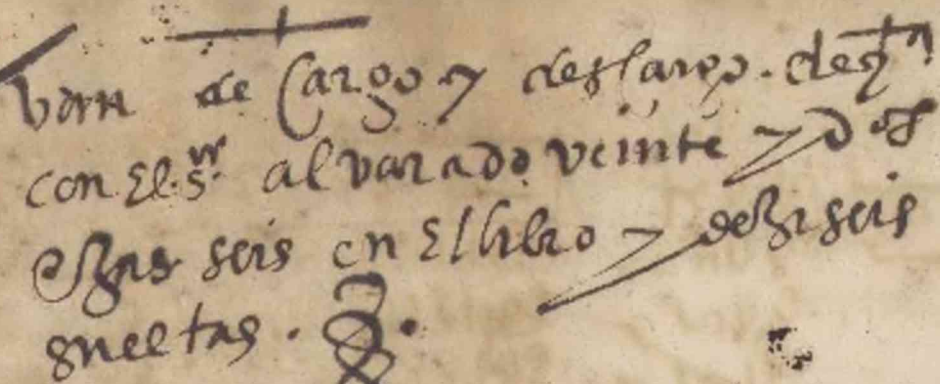 van de cargo y descargo. de qta
con El. sr. alvarado. veinte y dos
ojas seis en El libro y deziseis
sueltas.